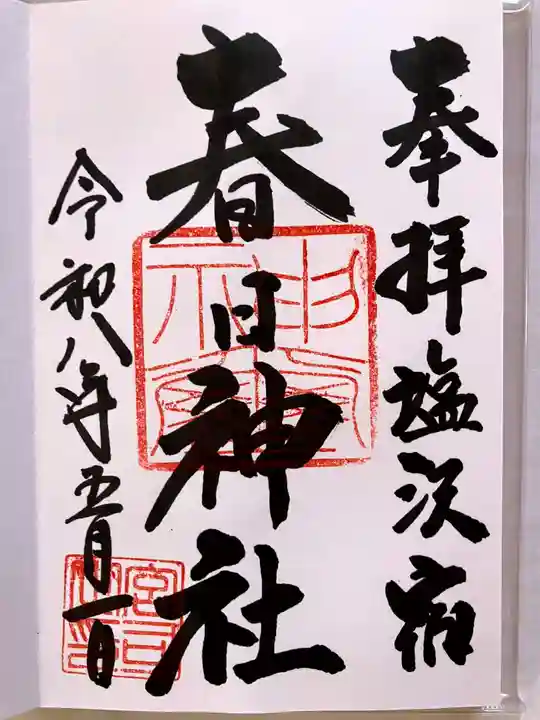 奉拝 塩茨宿
春日神社
令和八年五月一日